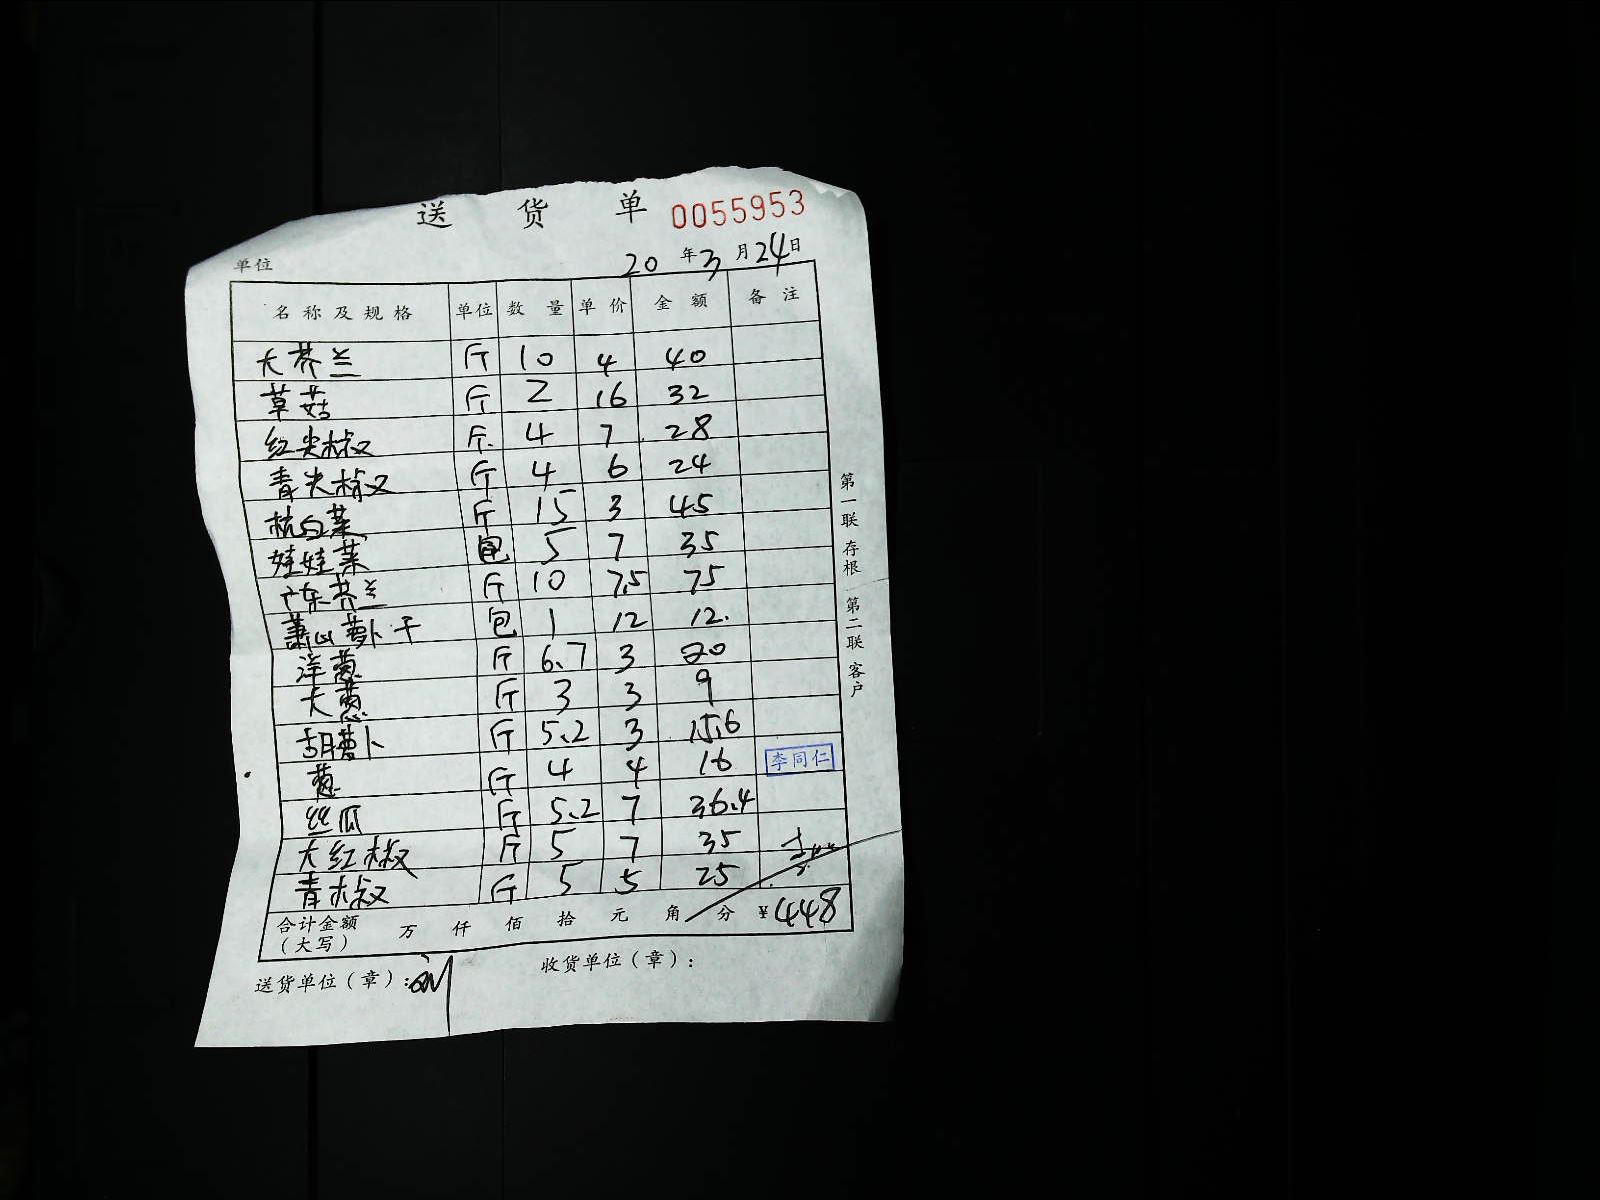 送 货 单 0055953
单位 20 年 3 月 24 日
名称及规格 单位 数量 单价 金额 备注
大芥兰 斤 10 4 40
草菇 斤 2 16 32
红尖椒 斤 4 7 28
青尖椒 斤 4 6 24
杭白菜 斤 15 3 45
娃娃菜 包 5 7 35
广东芥兰 斤 10 7.5 75
萧山萝卜干 包 1 12 12.
洋葱 斤 6.7 3 20
大葱 斤 3 3 9
胡萝卜 斤 5.2 3 15.6
葱 斤 4 4 16 李同仁
丝瓜 斤 5.2 7 36.4
大红椒 斤 5 7 35
青椒 斤 5 5 25
合计金额(大写) 万 仟 佰 拾 元 角 分 ¥448
送货单位(章): 收货单位(章):
第一联 存根 第二联 客户